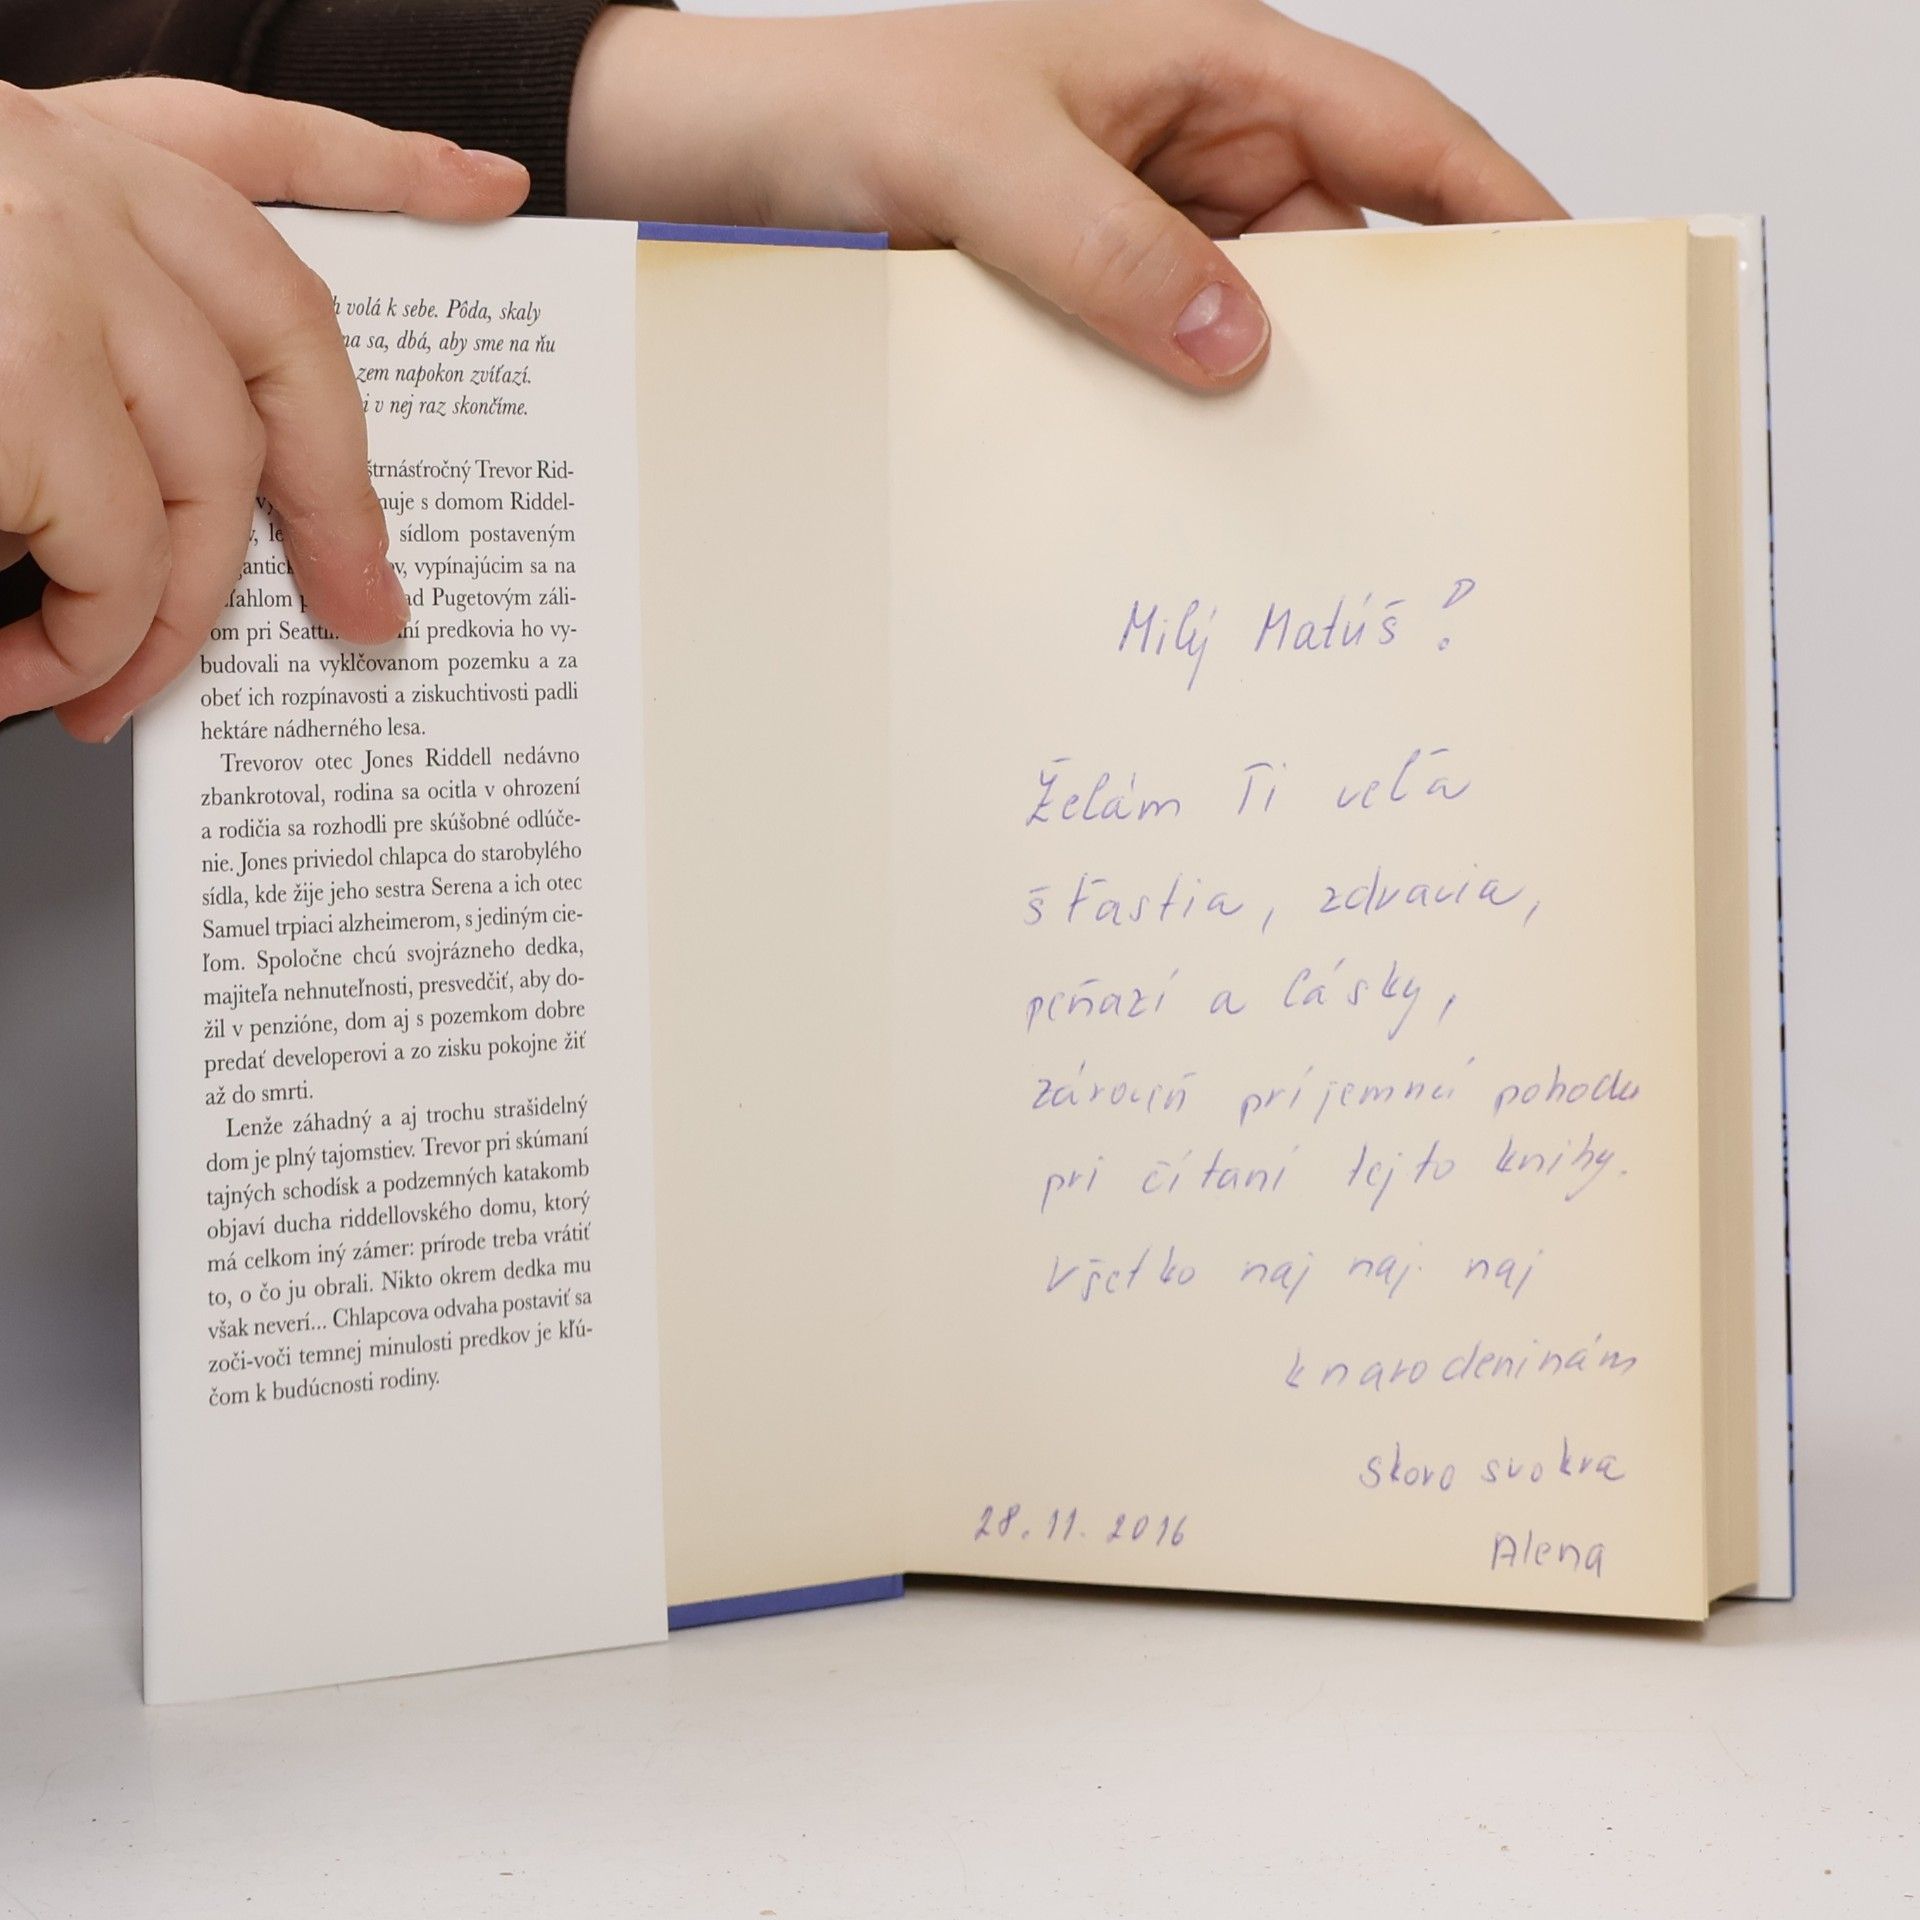 volá k sebe. Pôda, skaly
sa, dbá, aby sme na ňu
zem napokon zvíťazí.
i v nej raz skončíme.
štrnásťročný Trevor Rid-
s domom Riddel-
sídlom postaveným
vypínajúcim sa na
Pugetovým záli-
om pri predkovia ho vy-
budovali na vyklčovanom pozemku a za
obeť ich rozpínavosti a ziskuchtivosti padli
hektáre nádherného lesa.
Trevorov otec Jones Riddell nedávno
zbankrotoval, rodina sa ocitla v ohrození
a rodičia sa rozhodli pre skúšobné odlúče-
nie. Jones priviedol chlapca do starobylého
sídla, kde žije jeho sestra Serena a ich otec
Samuel trpiaci alzheimerom, s jediným cie-
ľom. Spoločne chcú svojrázneho dedka,
majiteľa nehnuteľnosti, presvedčiť, aby do-
žil v penzióne, dom aj s pozemkom dobre
predať developerovi a zo zisku pokojne žiť
až do smrti.
Lenže záhadný a aj trochu strašidelný
dom je plný tajomstiev. Trevor pri skúmaní
tajných schodísk a podzemných katakomb
objaví ducha riddellovského domu, ktorý
má celkom iný zámer: prírode treba vrátiť
to, o čo ju obrali. Nikto okrem dedka mu
však neverí... Chlapcova odvaha postaviť sa
zoči-voči temnej minulosti predkov je kľú-
čom k budúcnosti rodiny.
Milý Matúš !
Želám Ti veľa
šťastia, zdravia,
peňazí a lásky,
zároveň príjemnú pohodu
pri čítaní tejto knihy.
Všetko naj naj naj
k narodeninám
skoro svokra
28.11.2016
Alena